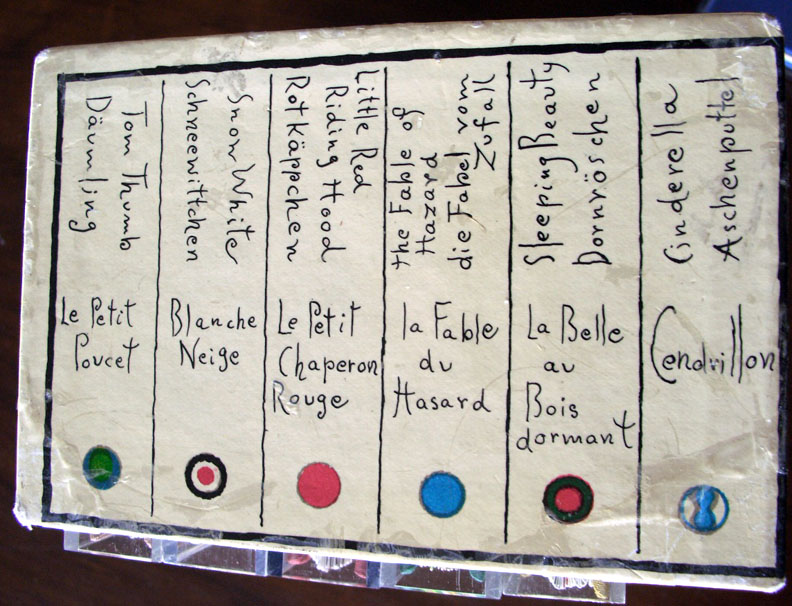 Tom Thumb
Däumling
Le Petit
Poucet
Snow White
Schneewittchen
Blanche
Neige
Little Red
Riding Hood
Rotkäppchen
Le Petit
Chaperon
Rouge
the Fable of
Hazard
die Fabel vom
Zufall
la Fable
du
Hasard
Sleeping Beauty
Dornröschen
La Belle
au
Bois
dormant
Cinderella
Aschenputtel
Cendrillon